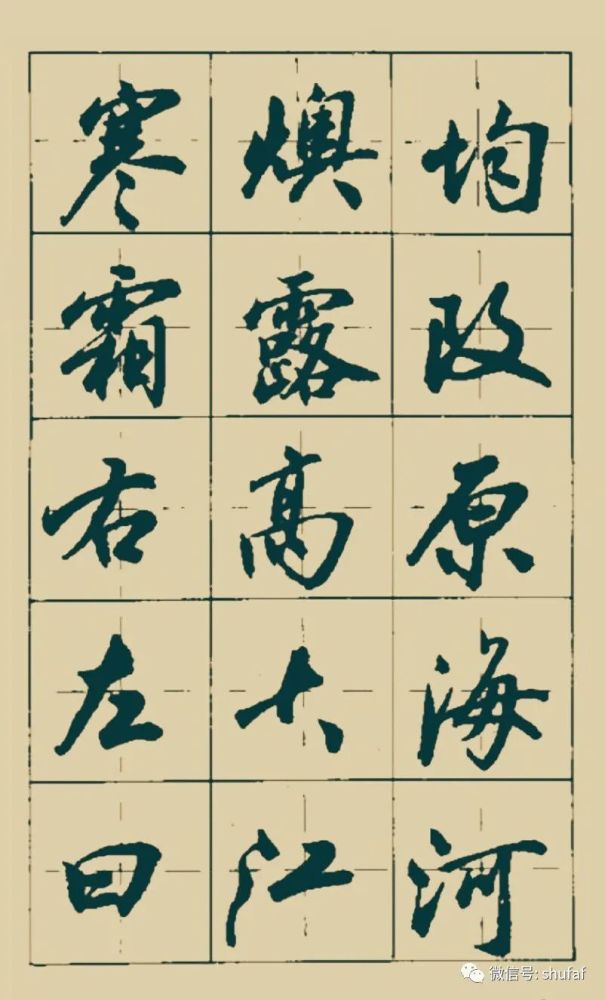 寒燠均
霜露改
右高原
左大海
曰江河
微信号: shufaf